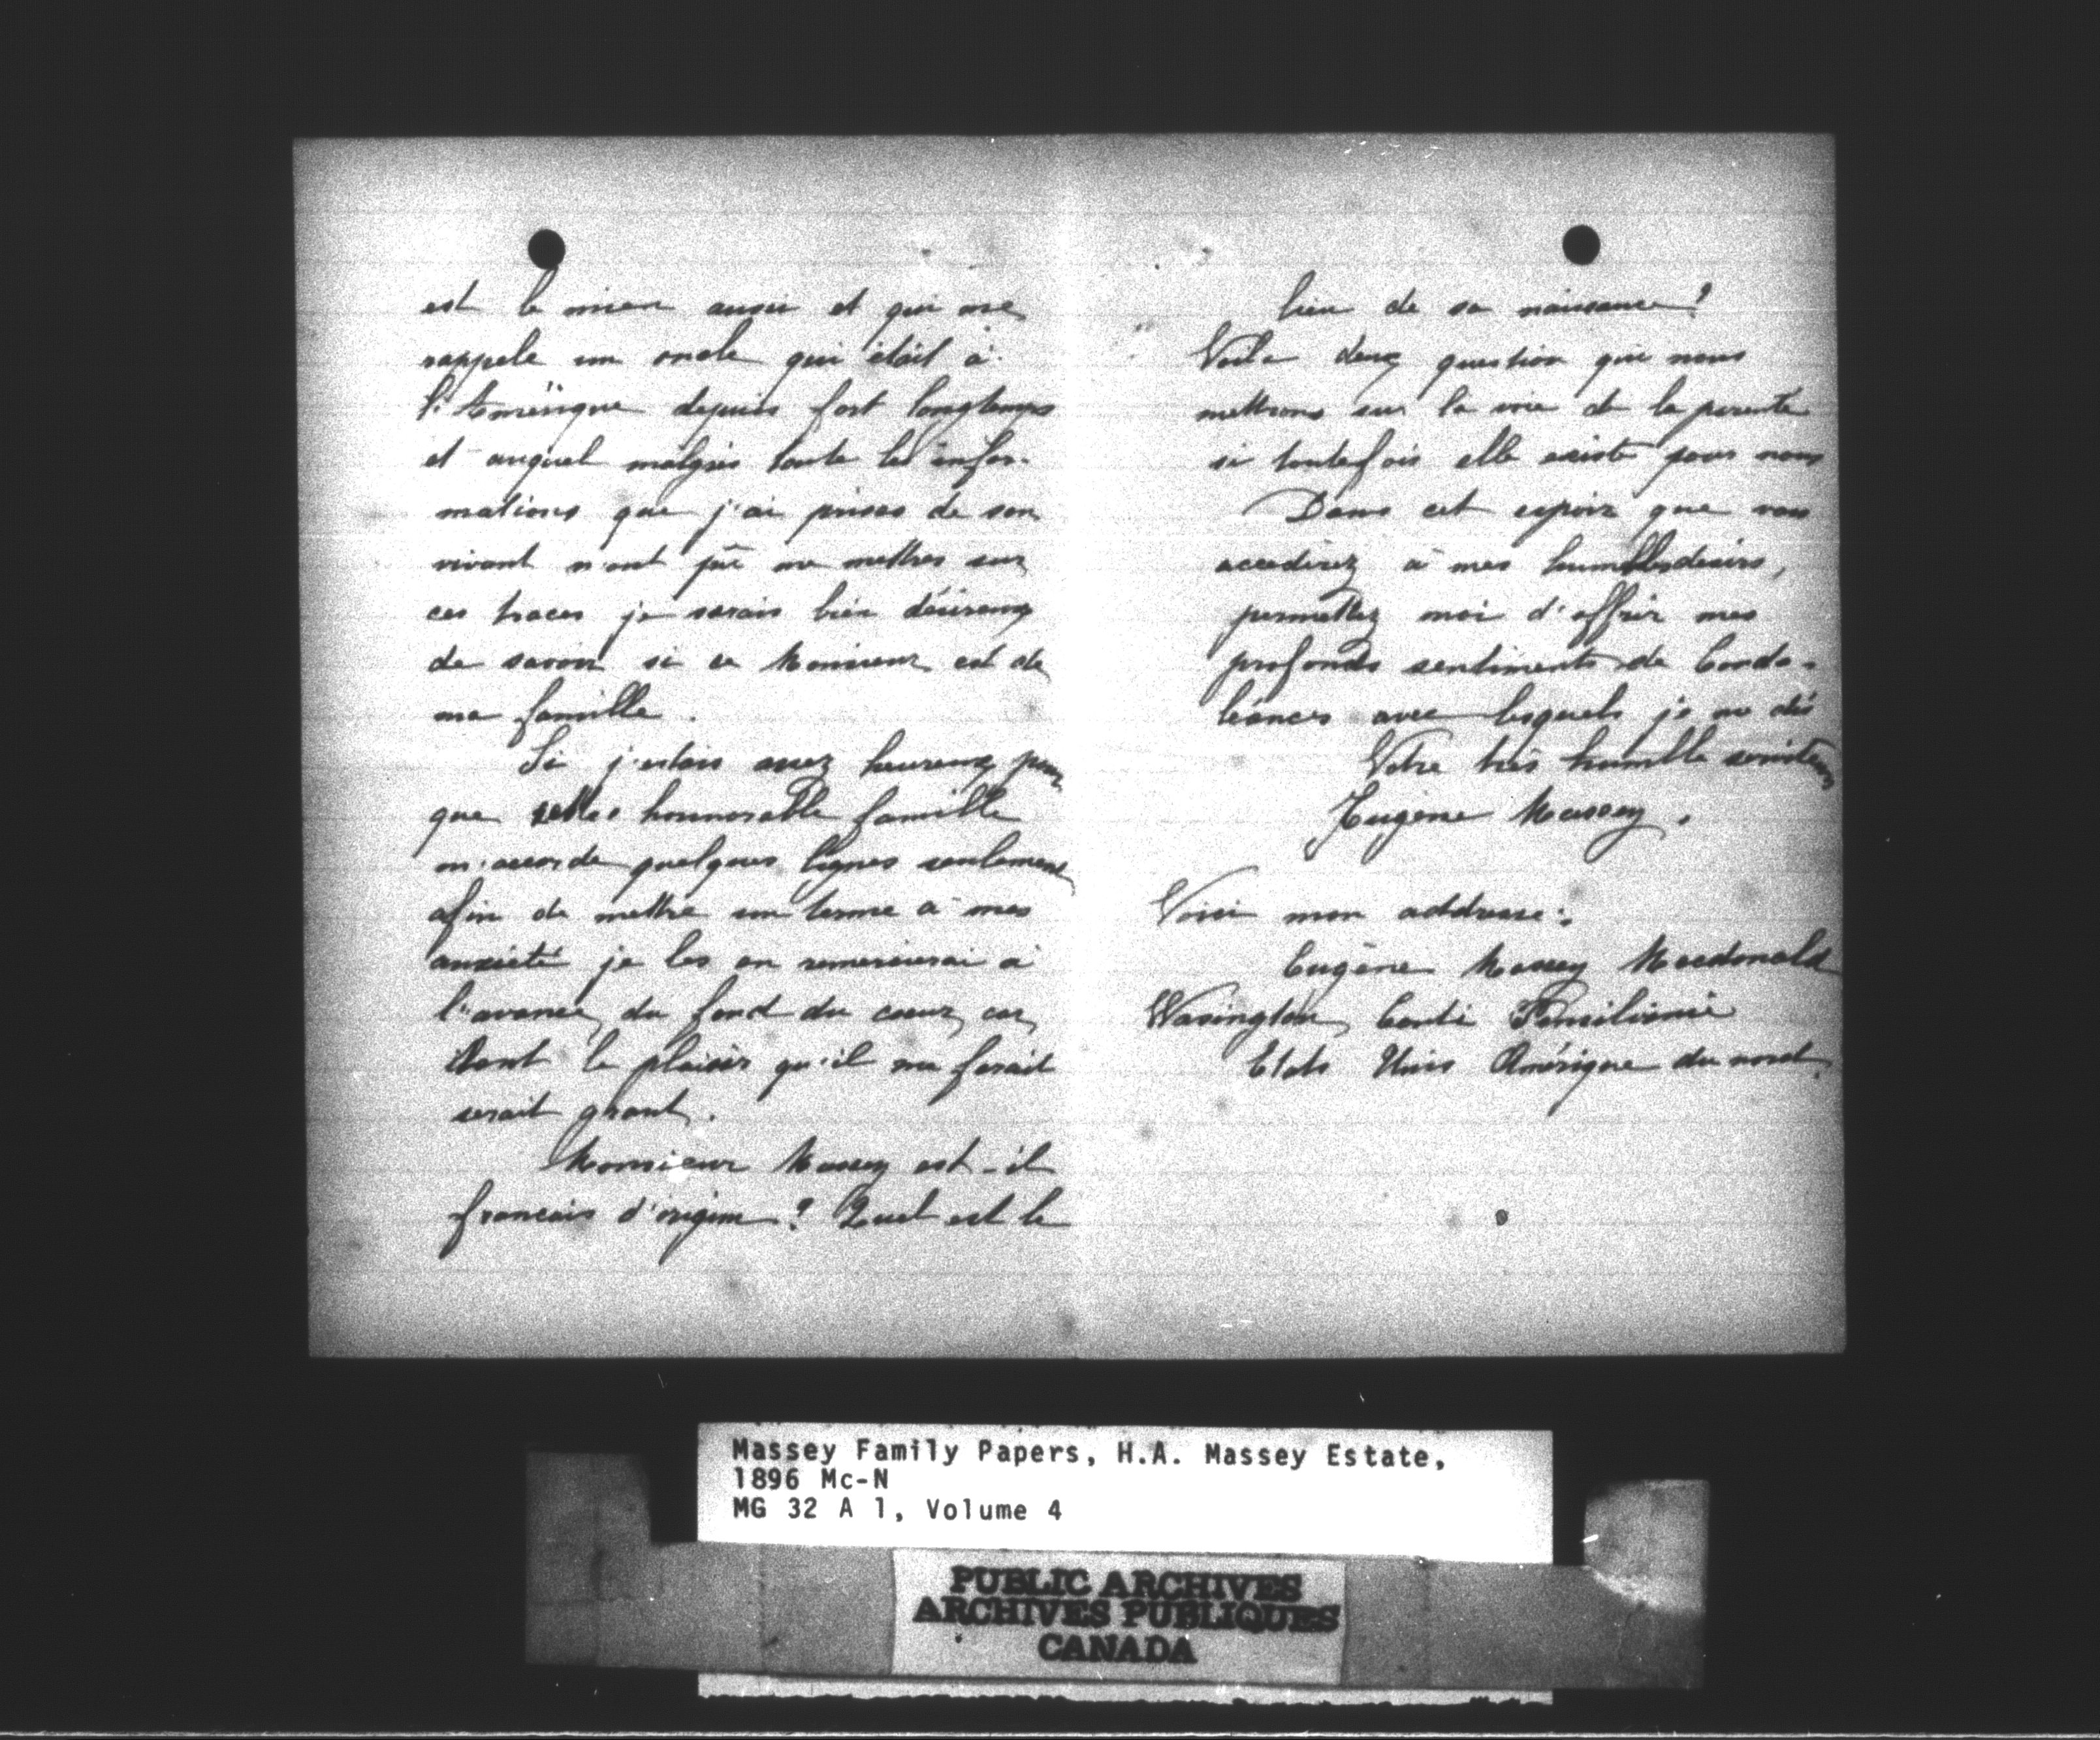 est le mien aussi et qui me
rappele un oncle qui était à
l'Amérique depuis fort longtemps
et auquel malgrés toute les infor-
mations que j'ai prises de son
vivant n'ont pû me mettres sur
ces traces je serais bien désireux
de savoir si ce Monsieur est de
ma famille.
Si j'etais assez heureux pour
que cette honnorable famille
m'accorde quelques lignes seulement
afin de mettre un terme à mes
anxiété je les en remercierai à
l'avance, du fond du coeur, car
dont le plaisir qu'il me ferait
serait grant.
Monsieur Massey est-il
francais d'origine? Quel est le
lieu de sa naissance?
Voila deux question qui nous
mettrons sur la voie de la parenté
si toutefois elle existe pour nous
Dans cet espoir que vous
accedirez à mes humbles desirs,
permettez moi d'offrir mes
profonds sentiments de Condo-
léances avec lesquels je me dis
Votre très humble serviteur
Eugène Massey.
Voici mon addresse:
Eugène Massey Macdonald
Wasington Conti Pensilvanie
Etats Unis Amérique du nord.
Massey Family Papers, H.A. Massey Estate,
1896 Mc-N
MG 32 A 1, Volume 4
PUBLIC ARCHIVES
ARCHIVES PUBLIQUES
CANADA